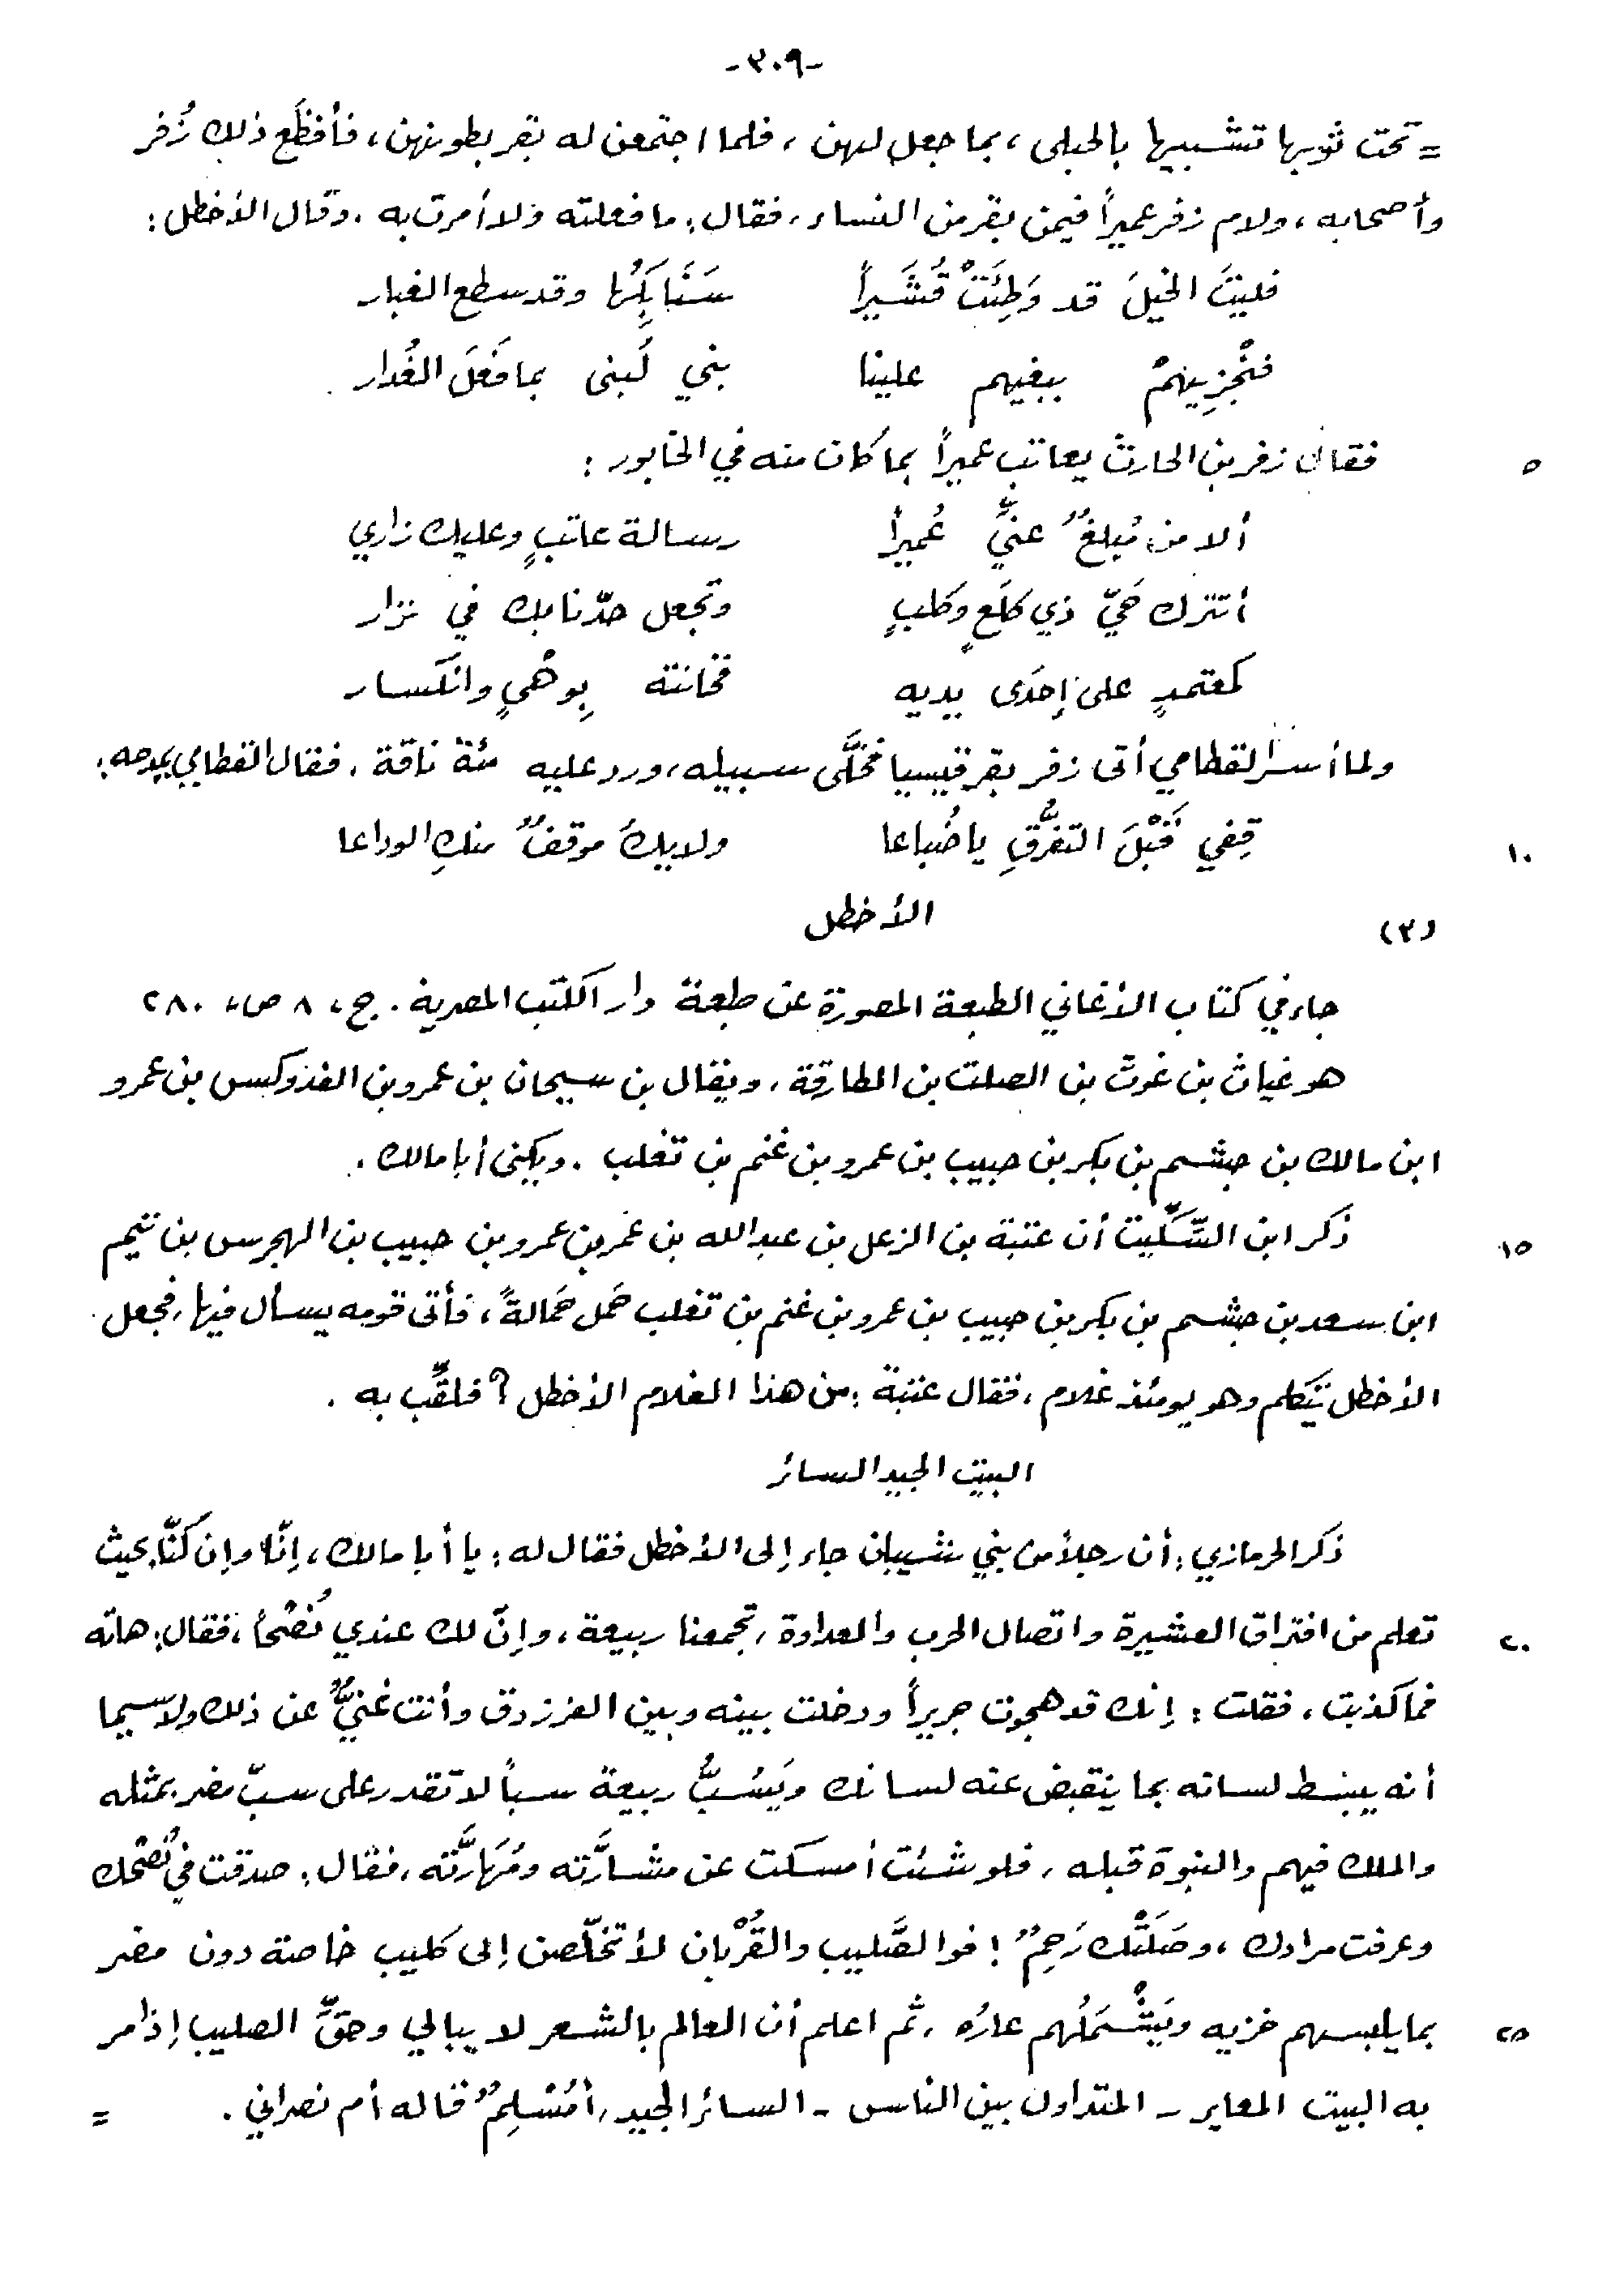 -٣٠٩-
= تحت ثوبها تشبيها بالحبلى، بما جعل لهن، فلما اجتمعن له بقر بطونهن، فأفظَع ذلك زُفر
وأصحابه، ولام زفر عميراً فيمن بقر من النساء، فقال: ما فعلته ولا أمرت به. وقال الأخطل:
فليتَ الخيلَ قد وَطِئَتْ قُشَيراً سَنَابِكُها وقد سطع الغبار
فنَجْزِيهمْ ببغيهم علينا بني لُبنى بما فَعَلَ الغُدار
٥ فقال زفر بن الحارث يعاتب عميراً بما كان منه في الخابور:
ألا من مُبلغٌ عنيِّ عُميراً رسالة عاتبٍ وعليك زاري
أتترك حَيّ ذي كلَعٍ وكلبٍ وتجعل حدّنا بك في نزار
كمعتمدٍ على إحدَى يديه فخانته بِوهْيٍ وانكسار
ولما أسر القطامي أتى زفر بقرقيسيا فخَلَّى سبيله، ورد عليه مئة ناقة. فقال القطامي يمدحه:
١٠ قِفي قَبْلَ التفرُّقِ يا ضُباعا ولا يكُ موقفٌ منكِ الوداعا
(٣) الأخطل
جاء في كتاب الأغاني الطبعة المصورة عن طبعة دار الكتب المصرية. ج، ٨ ص، ٢٨٠
هو غياث بن غوث بن الصلت بن الطارقة، ويقال بن سيحان بن عمرو بن الفدوكس بن عمرو
ابن مالك بن جشم بن بكر بن حبيب بن عمرو بن غنم بن تغلب. ويكنى أبا مالك.
١٥ ذكر ابن السّكِّيت أن عتبة بن الزعل بن عبد الله بن عمر بن عمرو بن حبيب بن الهجرس بن تيم
ابن سعد بن جشم بن بكر بن حبيب بن عمرو بن غنم بن تغلب حَمل حَمالةً، فأتى قومه يسأل فيها، فجعل
الأخطل يتكلم وهو يومئذ غلام، فقال عتبة: من هذا الغلام الأخطل؟ فلقِّب به.
البيت الجيد السائر
ذكر الحرمازي: أن رجلاً من بني شيبان جاء إلى الأخطل فقال له: يا أبا مالك، إنّا وإن كنّا بحيث
٢٠ تعلم من افتراق العشيرة واتصال الحرب والعداوة، تجمعنا ربيعة، وإنّ لك عندي نُصْحاً، فقال: هاته
فما كذبت، فقلت: إنك قد هجوت جريراً ودخلت بينه وبين الفرزدق وأنت غنيٌّ عن ذلك ولا سيما
أنه يبسط لسانه بما ينقبض عنه لسانك ويَسُبُّ ربيعة سباً لا تقدر على سبّ مضر بمثله
والملك فيهم والنبوة قبله، فلو شئت أمسكت عن مشارَّته ومُهَارَّته، فقال: صدقت في نُصْحك
وعرفت مرادك، وصَلَتْك رَحِمٌ! فوالصَّليب والقُرْبان لأتخلّصن إلى كليب خاصة دون مضر
٢٥ بما يلبسهم خزيه ويَشْمَلُهم عارُه، ثم اعلم أن العالم بالشعر لا يبالي وحقِّ الصليب إذا مر
به البيت المعاير - المتداول بين الناس - السائر الجيد، أمُسْلِمٌ قاله أم نصراني. =